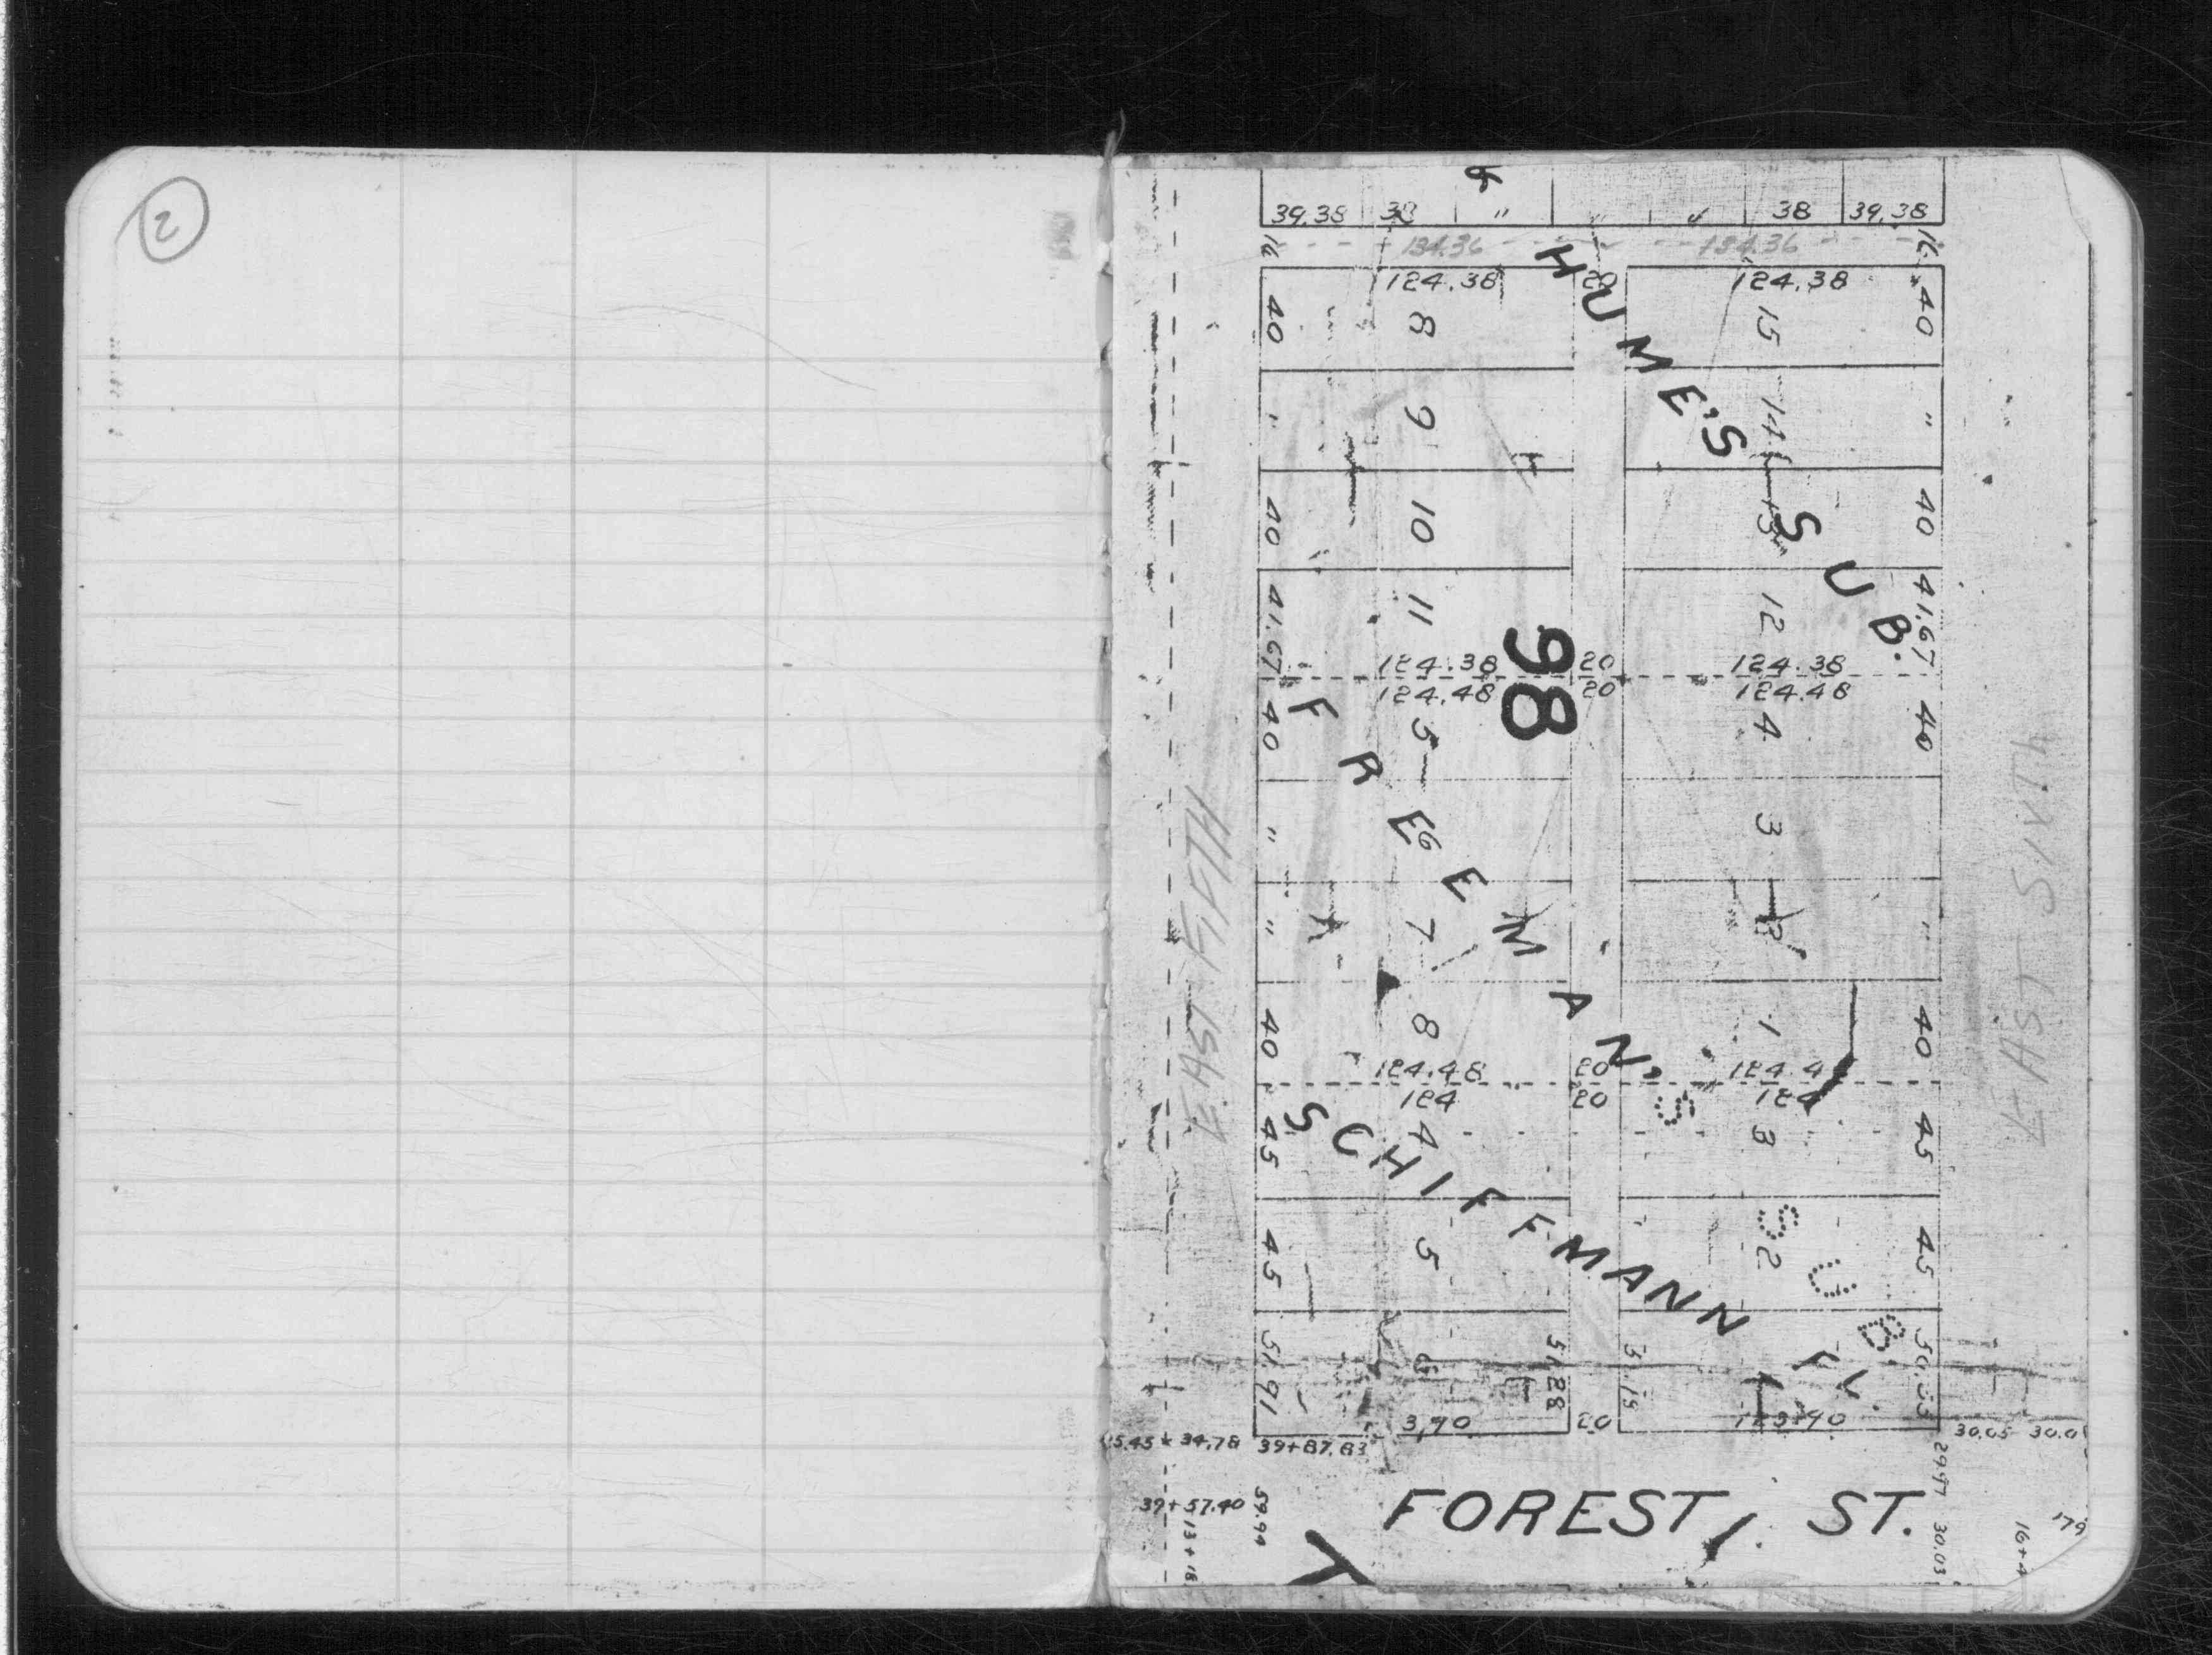 2
39.38 38 " " " 38 39.38
16 134.36 134.36 16
124.38 20 124.38
40 8 15 40
" 9 14 "
40 10 13 40
41.67 11 12 41.67
HUME'S SUB.
124.38 20 124.38
98
124.48 20 124.48
40 5 4 40
" 6 3
" 7 2 "
40 8 1 40
FREEMAN'S SUB.
124.48 20 124.4
124 20 124
45 4 3 45
45 5 2 45
51.91 6 51.88
SCHIFFMANN
3.90 20 123.90
34.78 39+87.83 30.05 30.0
39+57.40 59.94 29.97 30.03
13+18 16+4 179
FOREST ST.
EAST FIFTH
EAST SIXTH